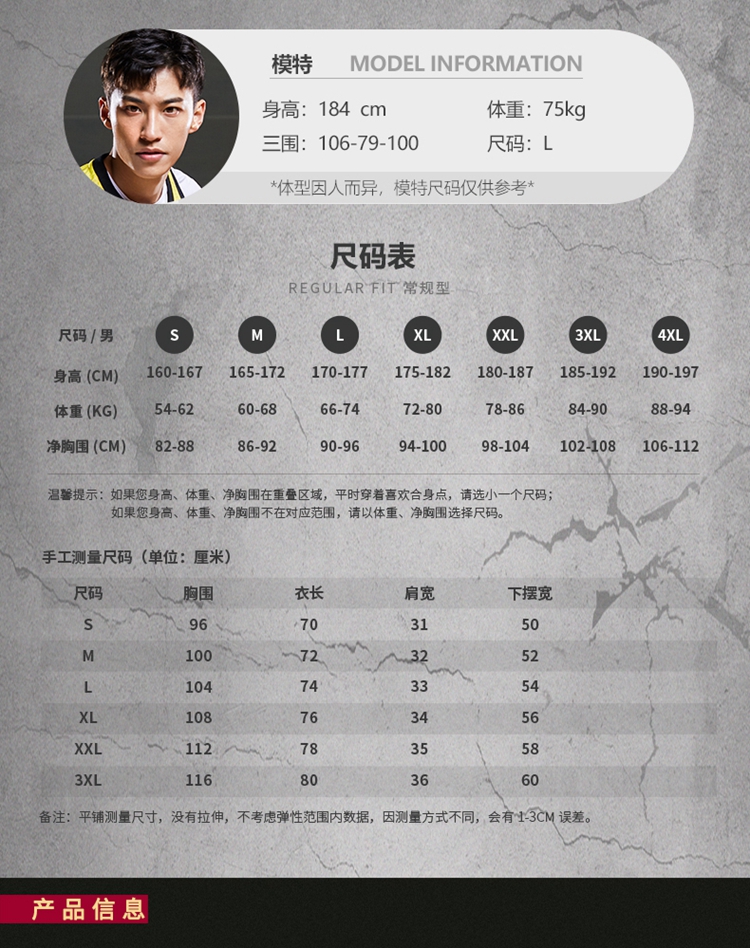 模特 MODEL INFORMATION
身高：184 cm 体重：75kg
三围：106-79-100 尺码：L
*体型因人而异，模特尺码仅供参考*
尺码表
REGULAR FIT 常规型
尺码 / 男 S M L XL XXL 3XL 4XL
身高 (CM) 160-167 165-172 170-177 175-182 180-187 185-192 190-197
体重 (KG) 54-62 60-68 66-74 72-80 78-86 84-90 88-94
净胸围 (CM) 82-88 86-92 90-96 94-100 98-104 102-108 106-112
温馨提示：如果您身高、体重、净胸围在重叠区域，平时穿着喜欢合身点，请选小一个尺码；
如果您身高、体重、净胸围不在对应范围，请以体重、净胸围选择尺码。
手工测量尺码（单位：厘米）
尺码 胸围 衣长 肩宽 下摆宽
S 96 70 31 50
M 100 72 32 52
L 104 74 33 54
XL 108 76 34 56
XXL 112 78 35 58
3XL 116 80 36 60
备注：平铺测量尺寸，没有拉伸，不考虑弹性范围内数据，因测量方式不同，会有 1-3CM 误差。
产品信息